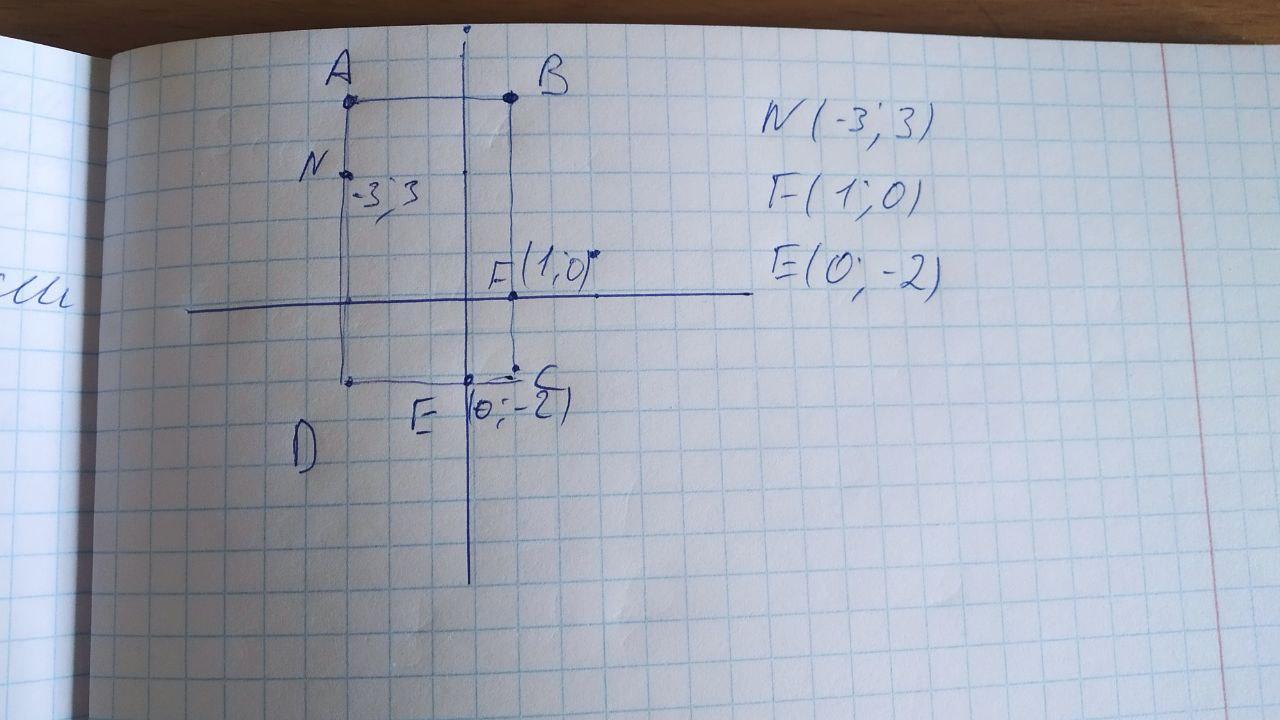 A
B
N
-3; 3
F (1; 0)
C
E (0; -2)
D
N (-3; 3)
F (1; 0)
E (0; -2)